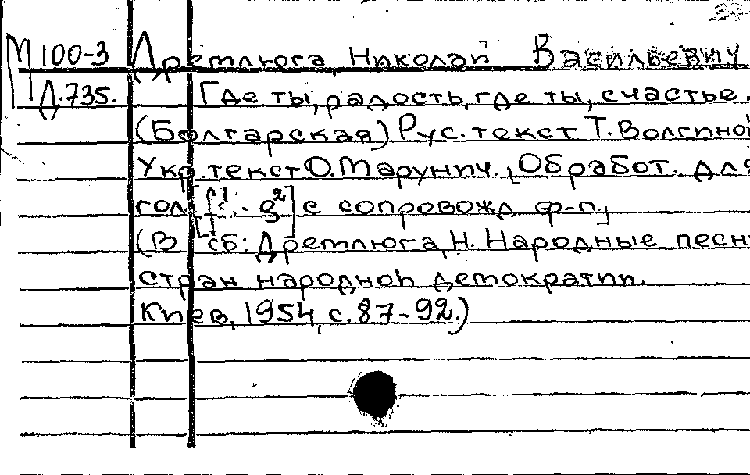 М 100-3 Дремлюга Николай Васильевич
Д.735. Где ты, радость, где ты, счастье.
(Болгарская) Рус. текст Т. Волгиной
Укр. текст О. Марунич. Обработ. для
гол. с сопровожд. ф-п.,
(В сб: Дремлюга, Н. Народные песни
стран народной демократии.
Киев, 1954, с. 87-92.)